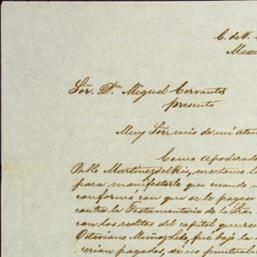 C. de V.
Mexi
Sor. Dn. Miguel Cervantes
presente
Muy Sor. mio de mi aten
Como apoderado
Pablo Martinez del Rio,
para manifestarle que cuando
conformó con que se le pagase
contra la Testamentaria de la Sra.
con los reditos del capital que reco
Octaviano Muñozledo, fué bajo la
serian pagados,